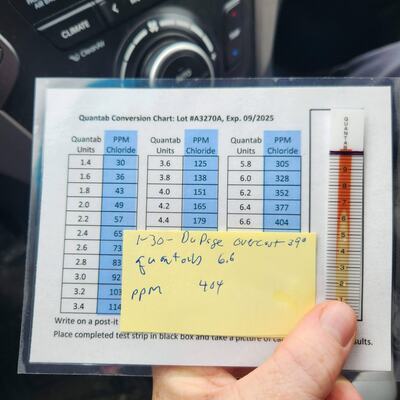 CLIMATE
Clean Air
AUTO
Quantab Conversion Chart: Lot #A3270A, Exp. 09/2025
Quantab Units PPM Chloride Quantab Units PPM Chloride Quantab Units PPM Chloride
1.4 30 3.6 125 5.8 305
1.6 36 3.8 138 6.0 328
1.8 43 4.0 151 6.2 352
2.0 49 4.2 165 6.4 377
2.2 57 4.4 179 6.6 404
2.4 65
2.6 73
2.8 83
3.0 92
3.2 103
3.4 114
QUANTAB
9
8
7
6
5
4
3
2
1
1-30- DuPage overcast 39°
quantabs 6.6
PPM 404
Write on a post-it
Place completed test strip in black box and take a picture of car results.